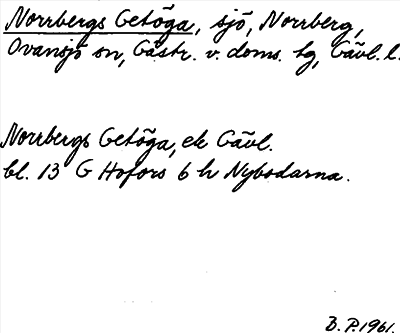 Norrbergs Getöga, sjö, Norrberg,
Ovansjö sn, Gästr. v. doms. tg, Gävl. l.
Norrbergs Getöga, ek Gävl.
bl. 13 G Hofors 6 h Nybodarna.
B. P. 1961.